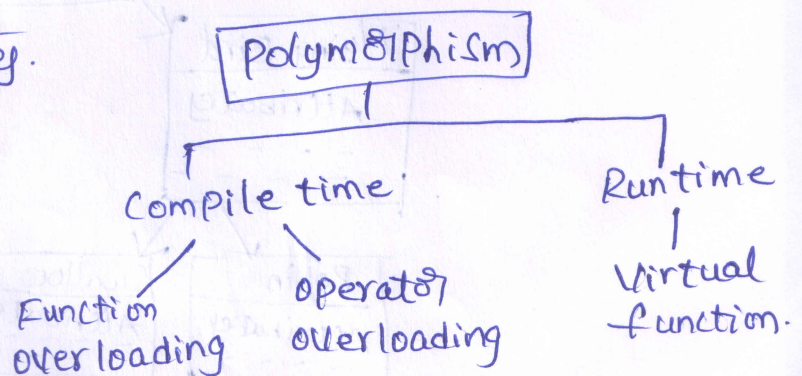 Polymorphism
Compile time
Runtime
Function
overloading
operator
overloading
Virtual
function.